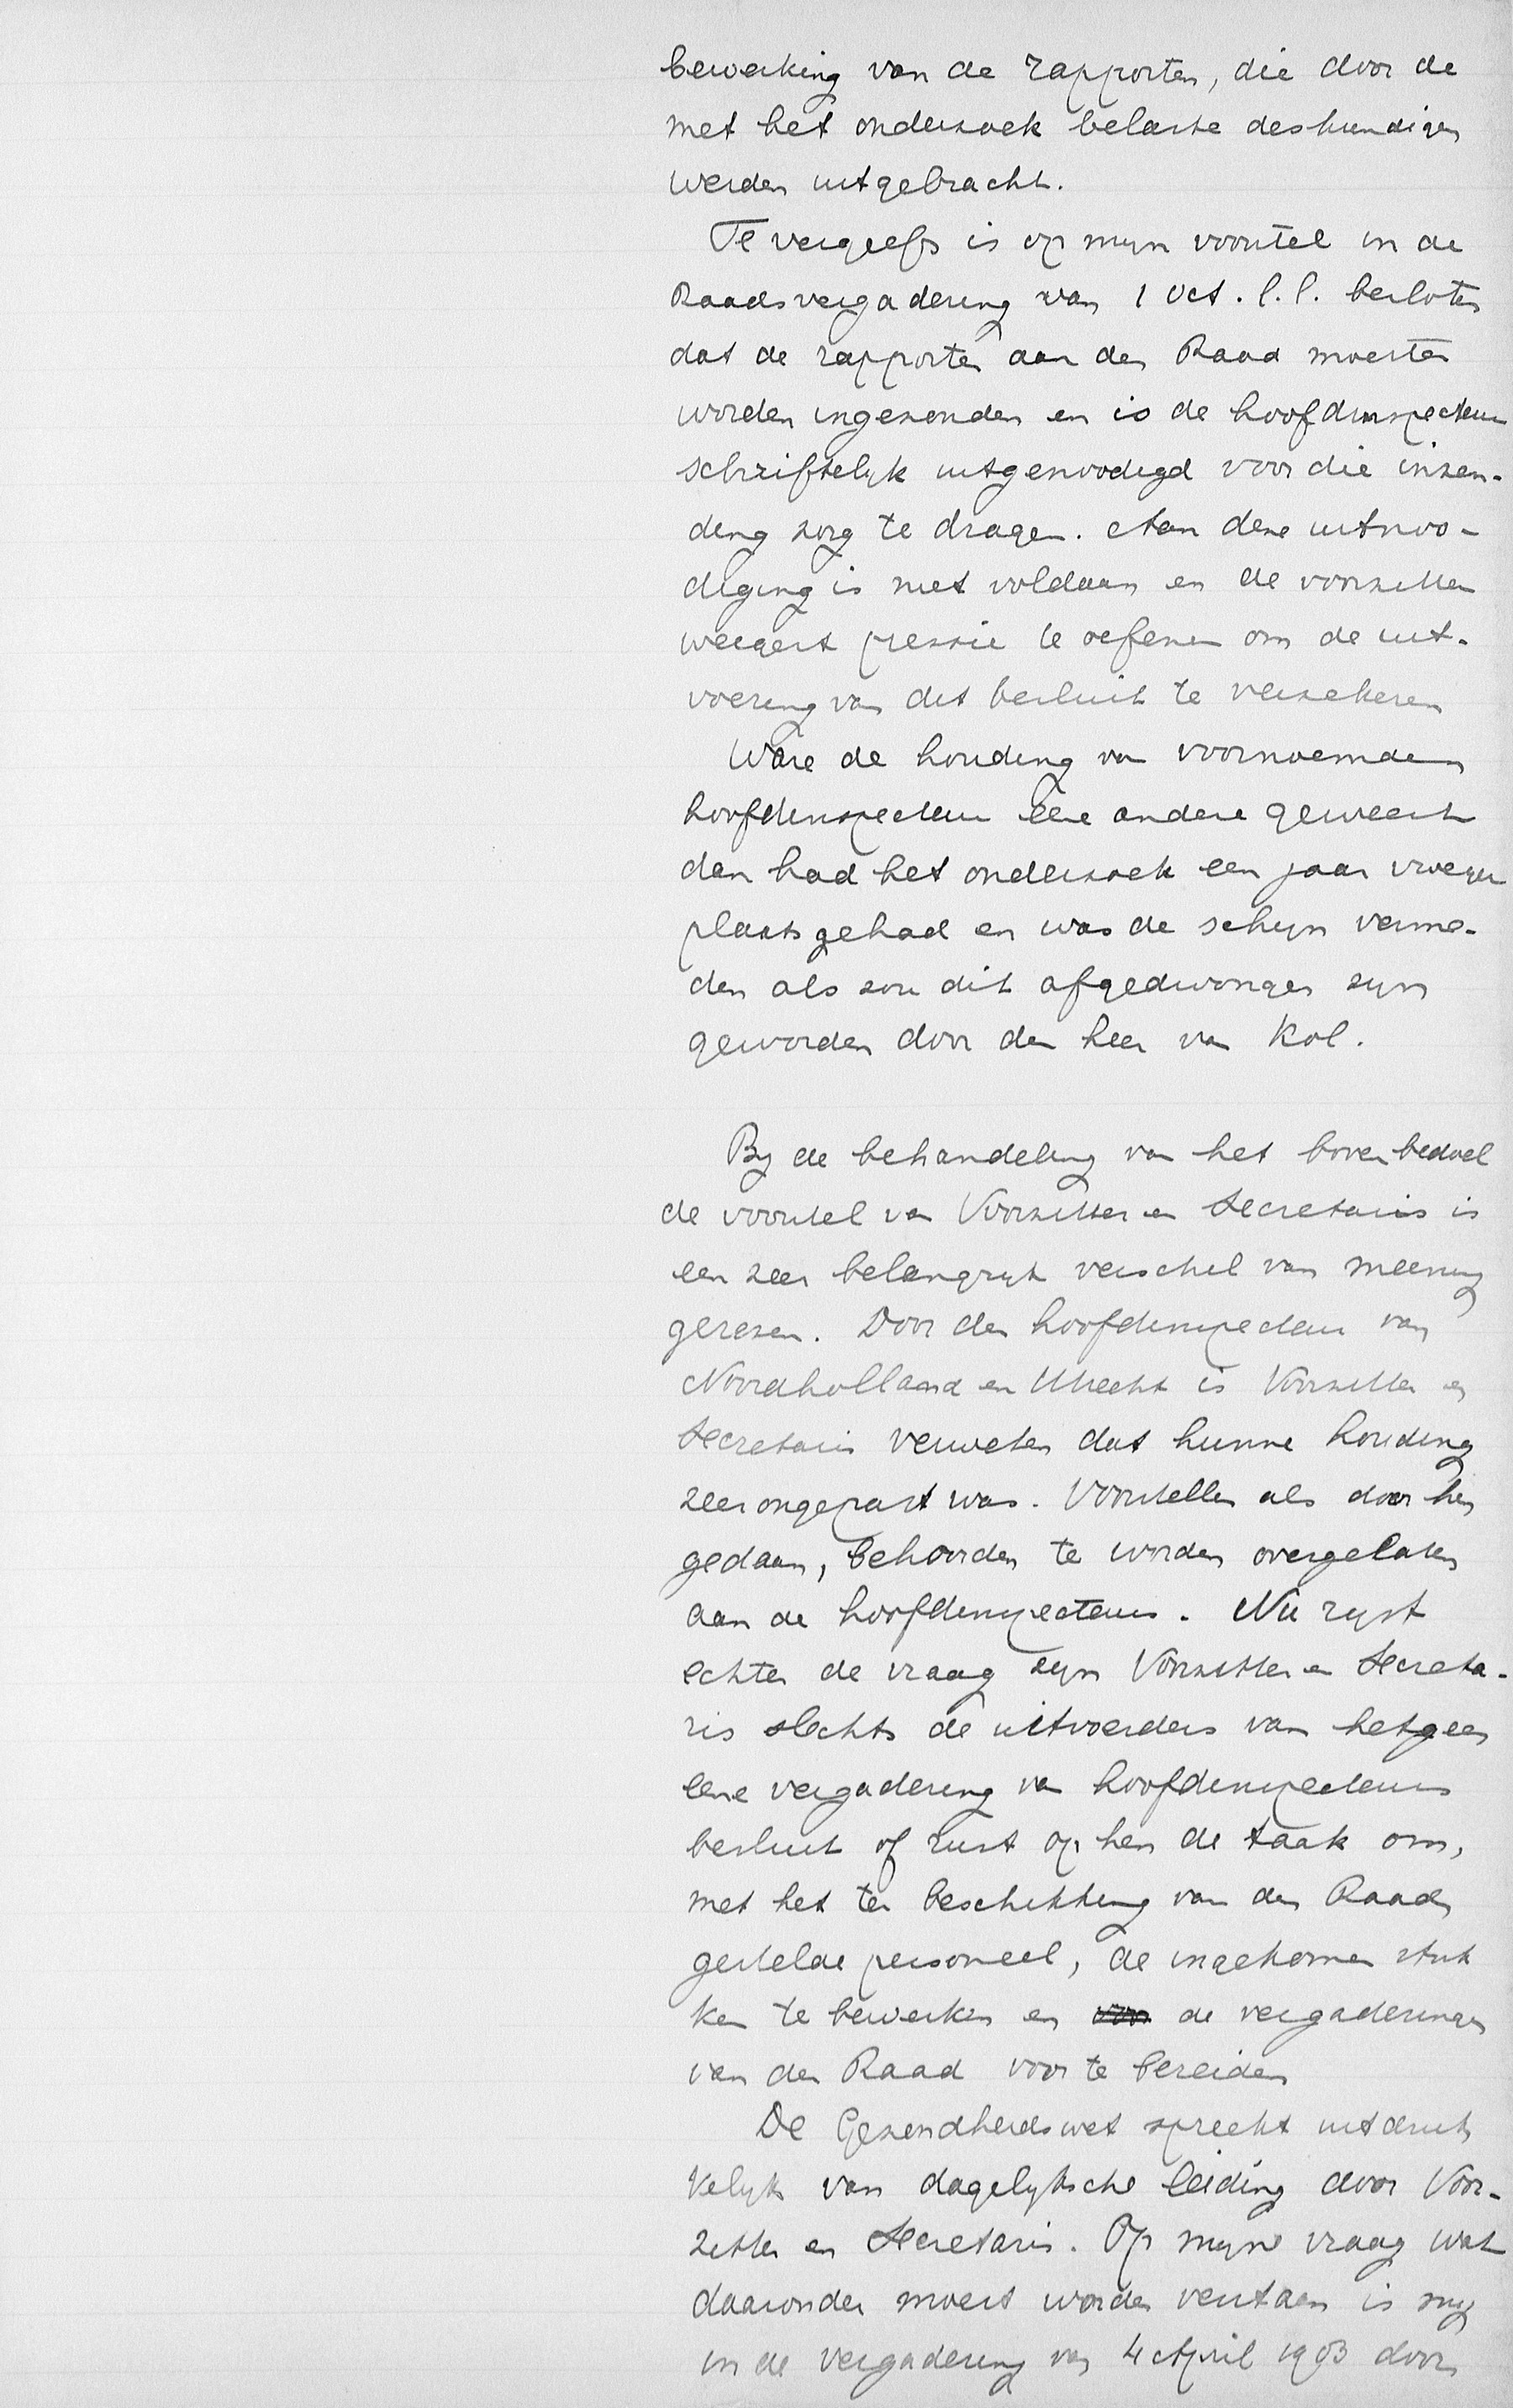 bewerking van de rapporten, die door de
met het onderzoek belaste deskundigen
werden uitgebracht.
Te vergeefs is op mijn voorstel in de
Raadsvergadering van 1 Oct. l.l. besloten
dat de rapporten aan den Raad moesten
worden ingezonden en is de hoofdinspecteur
schriftelijk uitgenoodigd voor die inzen-
ding zorg te dragen. Aan deze uitnoo-
diging is niet voldaan en de voorzitter
weigert pressie te oefenen om de uit-
voering van dit besluit te verzekeren
Ware de houding van voornoemden
hoofdinspecteur eene andere geweest
dan had het onderzoek een jaar vroeger
plaats gehad en was de schijn verme-
den als zou dit afgedwongen zijn
geworden door den heer van Kol.
By de behandeling van het bovenbedoel
de voorstel van Voorzitter en Secretaris is
een zeer belangrijk verschil van meening
gerezen. Door den hoofdinspecteur van
Noordholland en Utrecht is Voorzitter en
Secretaris verweten dat hunne houding
zeer ongepast was. Voorstellen als door hen
gedaan, behoorden te worden overgelaten
aan de hoofdinspecteurs. Nu rijst
echter de vraag zijn Voorzitter en Secreta-
ris slechts de uitvoerders van hetgeen
eene vergadering van hoofdinspecteurs
besluit of rust op hen de taak om,
met het ter beschikking van den Raad
gestelde personeel, de ingekomen stuk
ken te bewerken en voor de vergaderingen
van den Raad voor te bereiden
De Gezondheidswet spreekt uitdruk
kelijk van dagelijksche leiding door Voor-
zitter en Secretaris. Op mijne vraag wat
daaronder moest worden verstaan is mij
in de vergadering van 4 April 1903 door